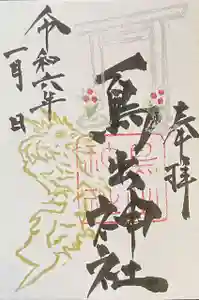 奉拝
鳥出神社
令和六年
一月 日